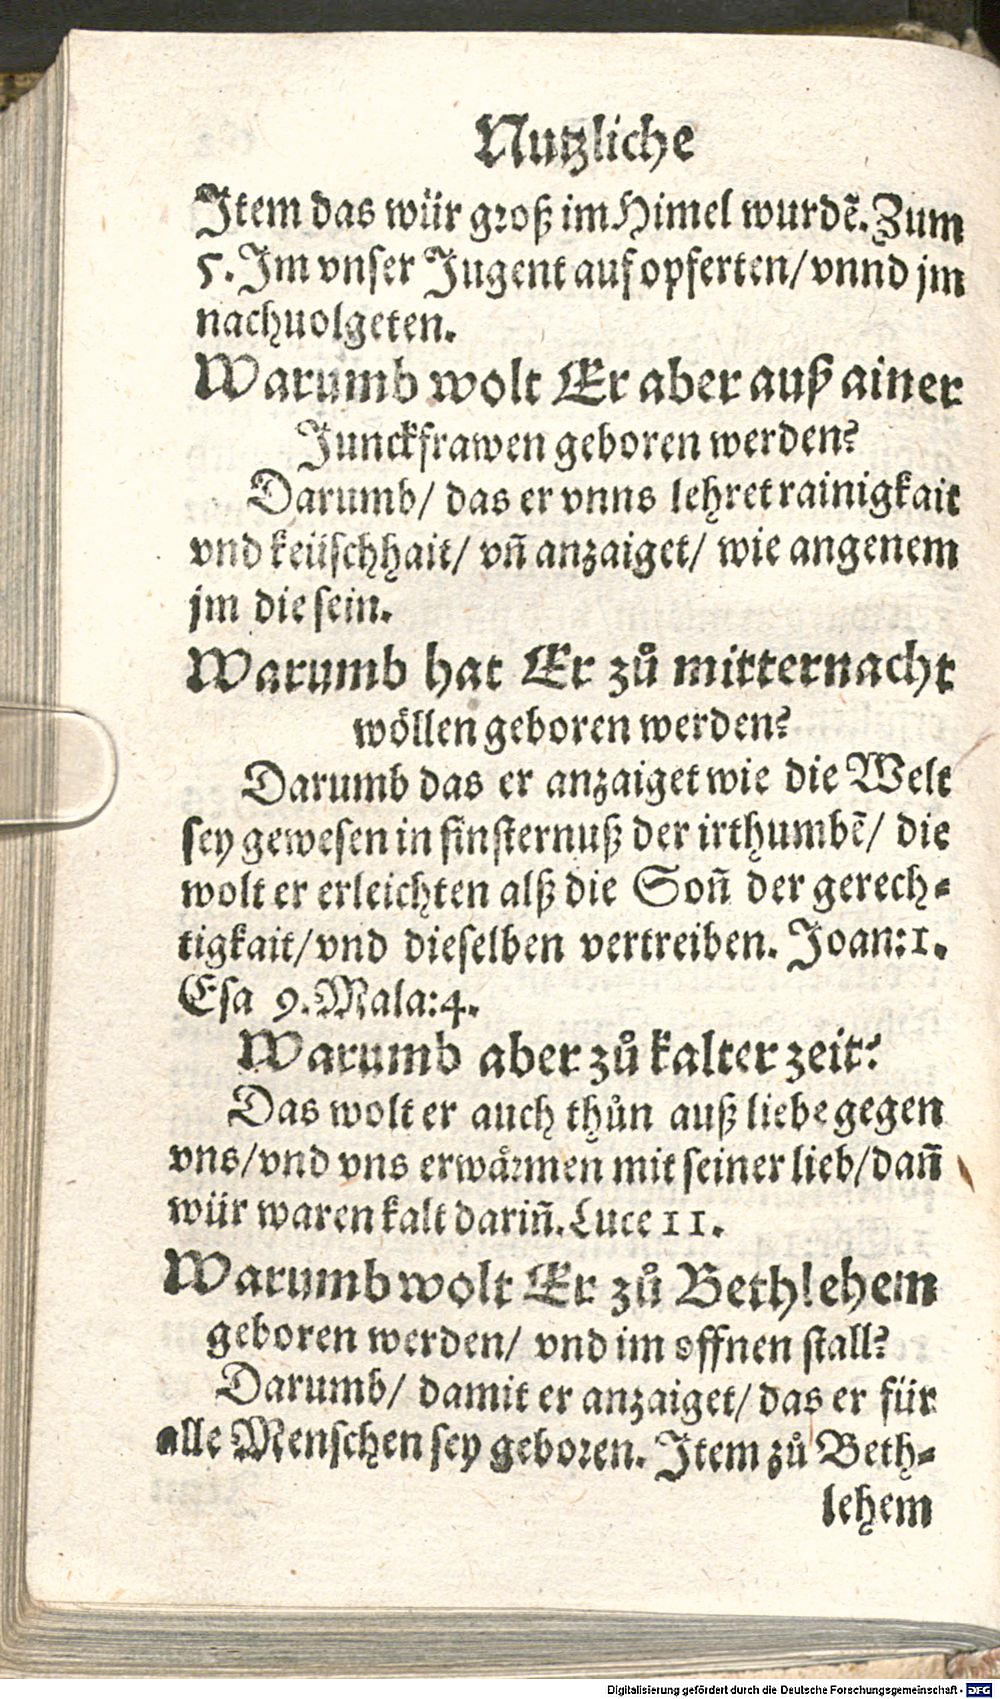 Nutzliche
Item das wür groß im Himel wurdē. Zum
5. Im vnser Jugent auf opferten/ vnnd jm
nachuolgeten.
Warumb wolt Er aber auß ainer
Junckfrawen geboren werden?
Darumb/ das er vnns lehret rainigkait
vnd keüschhait/ vñ anzaiget/ wie angenem
jm die sein.
Warumb hat Er zů mitternacht
wöllen geboren werden?
Darumb das er anzaiget wie die Welt
sey gewesen in finsternuß der irthumbē/ die
wolt er erleichten alß die Soñ der gerech-
tigkait/ vnd dieselben vertreiben. Joan: 1.
Esa 9. Mala: 4.
Warumb aber zů kalter zeit?
Das wolt er auch thůn auß liebe gegen
vns/ vnd vns erwaͤrmen mit seiner lieb/ dañ
wür waren kalt dariñ. Luce 11.
Warumb wolt Er zů Bethlehem
geboren werden/ vnd im offnen stall?
Darumb/ damit er anzaiget/ das er für
alle Menschen sey geboren. Item zů Beth-
lehem
Digitalisierung gefördert durch die Deutsche Forschungsgemeinschaft - DFG